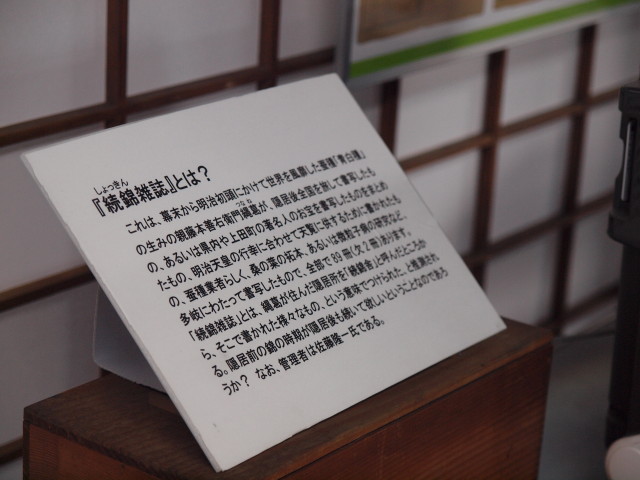 しょっきん
『続錦雑誌』とは？
これは、幕末から明治初頭にかけて世界を風靡した蚕種「青白種」
の生みの親藤本善右衛門縄葛が、隠居後全国を旅して書写したも
つなね
の、あるいは県内や上田町の著名人のお宝を書写したものをまとめ
たもの、明治天皇の行幸に合わせて天覧に供するために書かれたも
の、蚕種業者らしく、桑の葉の拓本、あるいは微粒子病の研究など、
多岐にわたって書写したもので、全部で 89 冊(欠 2 冊)あります。
「続錦雑誌」とは、縄葛が住んだ隠居所を「続錦舎」と呼んだところか
ら、そこで書かれた様々なもの、という意味でつけられた、と推測され
る。隠居前の錦の時期が隠居後も続いて欲しいということなのであろ
うか？ なお、管理者は佐藤隆一氏である。